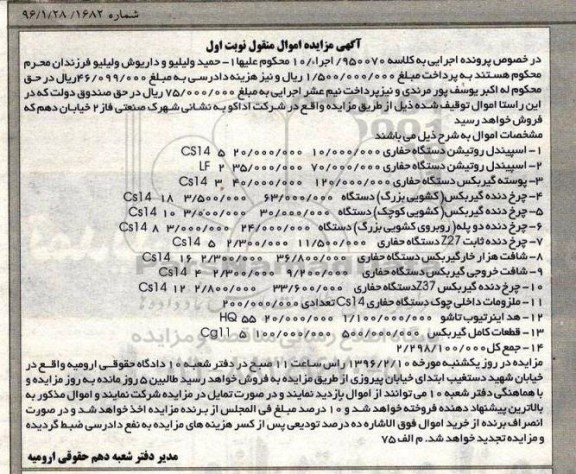 شماره ۱۶۸۲/ ۹۶/۱/۲۸
آگهی مزایده اموال منقول نوبت اول
در خصوص پرونده اجرایی به کلاسه ۹۵۰۰۷۰/اجراء/۱۰ محکوم علیها ۱- حمید ولیلیو و داریوش ولیلیو فرزندان محرم
محکوم هستند به پرداخت مبلغ ۱/۵۰۰/۰۰۰/۰۰۰ ریال و نیز هزینه دادرسی به مبلغ ۴۶/۰۹۹/۰۰۰ ریال در حق
محکوم له اکبر یوسف پور مرندی و نیز پرداخت نیم عشر اجرایی به مبلغ ۷۵/۰۰۰/۰۰۰ ریال در حق صندوق دولت که در
این راستا اموال توقیف شده ذیل از طریق مزایده واقع در شرکت اداکو به نشانی شهرک صنعتی فاز ۲ خیابان دهم که
فروش خواهد رسید
مشخصات اموال به شرح ذیل می باشند
۱- اسپیندل روتیشن دستگاه حفاری ۱۰/۰۰۰/۰۰۰ ۲۰/۰۰۰/۰۰۰ ۵ CS14
۲- اسپیندل روتیشن دستگاه حفاری ۷۰/۰۰۰/۰۰۰ ۳۵/۰۰۰/۰۰۰ ۲ LF
۳- پوسته گیربکس دستگاه حفاری ۱۲۰/۰۰۰/۰۰۰ ۴۰/۰۰۰/۰۰۰ ۳ Cs14
۴- چرخ دنده گیربکس(کشویی بزرگ) دستگاه ۶۳/۰۰۰/۰۰۰ ۳/۵۰۰/۰۰۰ ۱۸ Cs14
۵- چرخ دنده گیربکس(کشویی کوچک) دستگاه ۳۰/۰۰۰/۰۰۰ ۳/۰۰۰/۰۰۰ ۱۰ Cs14
۶- چرخ دنده دو پله(روبروی کشویی بزرگ) دستگاه ۲۴/۰۰۰/۰۰۰ ۳/۰۰۰/۰۰۰ ۸ Cs14
۷- چرخ دنده ثابت Z27 دستگاه حفاری ۱۱/۵۰۰/۰۰۰ ۲/۳۰۰/۰۰۰ ۵ Cs14
۸- شافت هزار خار گیربکس دستگاه حفاری ۳۶/۸۰۰/۰۰۰ ۲/۳۰۰/۰۰۰ ۱۶ Cs14
۹- شافت خروجی گیربکس دستگاه حفاری ۹/۲۰۰/۰۰۰ ۲/۳۰۰/۰۰۰ ۴ Cs14
۱۰- چرخ دنده گیربکس Z37 دستگاه حفاری ۳۳/۶۰۰/۰۰۰ ۲/۸۰۰/۰۰۰ ۱۲ Cs14
۱۱- ملزومات داخلی چوک دستگاه حفاری Cs14 تعدادی ۲۰۰/۰۰۰/۰۰۰
۱۲- هد اینرتیوب تاشو ۱/۱۰۰/۰۰۰/۰۰۰ ۲۰/۰۰۰/۰۰۰ ۵۵ HQ
۱۳- قطعات کامل گیربکس ۵۰۰/۰۰۰/۰۰۰ ۱۰۰/۰۰۰/۰۰۰ ۵ Cg11
۱۴- جمع کل ۲/۲۹۸/۱۰۰/۰۰۰
مزایده در روز یکشنبه مورخه ۱۳۹۶/۲/۱۰ راس ساعت ۱۱ صبح در دفتر شعبه ۱۰ دادگاه حقوقی ارومیه واقع در
خیابان شهید دستغیب ابتدای خیابان پیروزی از طریق مزایده به فروش خواهد رسید طالبین ۵ روز مانده به روز مزایده و
با هماهنگی دفتر شعبه ۱۰ می توانند از اموال بازدید نمایند و در صورت تمایل در مزایده شرکت نمایند و اموال مذکور به
بالاترین پیشنهاد دهنده فروخته خواهد شد و ۱۰ درصد مبلغ فی المجلس از برنده مزایده اخذ خواهد شد و در صورت
انصراف برنده از خرید اموال فوق الاشاره ده درصد تودیعی پس از کسر هزینه های مزایده به نفع دادرسی ضبط گردیده
و مزایده تجدید خواهد شد. م الف ۷۵
مدیر دفتر شعبه دهم حقوقی ارومیه